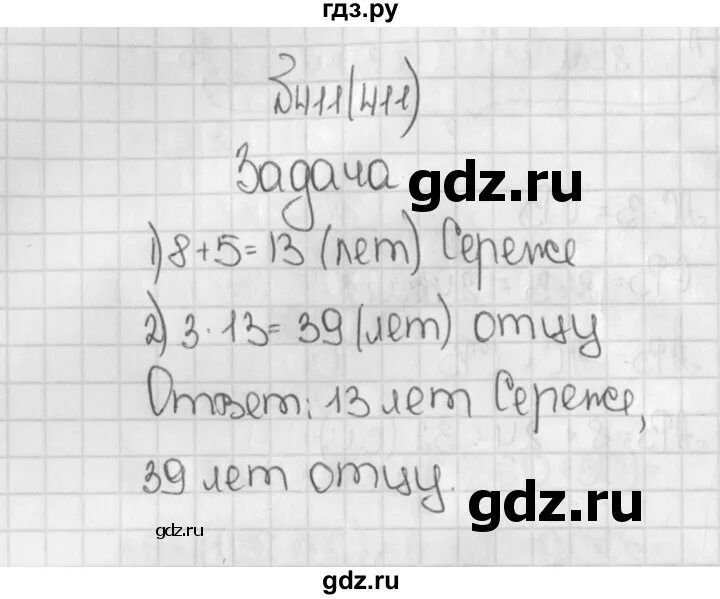 гдз.ру
№411(411)
Задача
gdz.ru
1) 8+5=13 (лет) Сереже
2) 3·13=39 (лет) отцу
Ответ: 13 лет Сереже,
39 лет отцу.
gdz.ru
gdz.ru
gdz.ru